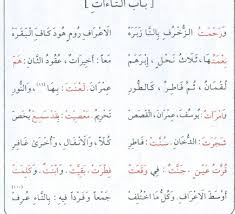 [ بَابُ التَّاءَاتِ ]
وَرَحْمَتُ الزُّخْرُفِ بِالتَّا زَبَرَهْ الاعْرَافِ رُومٍ هُودَ كَافِ الْبَقَرَهْ
نِعْمَتُهَا ثَلَاثُ نَحْلٍ إِبْرَهَمْ مَعًا أَخِيرَاتٌ عُقُودُ الثَّانِ هَمْ
لُقْمَانُ ثُمَّ فَاطِرٌ كَالطُّورِ عِمْرَانَ لَعْنَتَ بِهَا وَالنُّورِ
وَامْرَأَتٌ يُوسُفَ عِمْرَانَ الْقَصَصْ تَحْرِيمُ مَعْصِيَتْ بِقَدْ سَمِعْ يُخَصْ
شَجَرَتَ الدُّخَانِ سُنَّتْ فَاطِرِ كُلًّا وَالانْفَالِ وَأُخْرَى غَافِرِ
قُرَّتُ عَيْنٍ جَنَّتٌ فِي وَقَعَتْ فِطْرَتْ بَقِيَّتْ وَابْنَتٌ وَكَلِمَتْ
أَوْسَطَ الاعْرَافِ وَكُلُّ مَا اخْتُلِفْ جَمْعًا وَفَرْدًا فِيهِ بِالتَّاءِ عُرِفْ